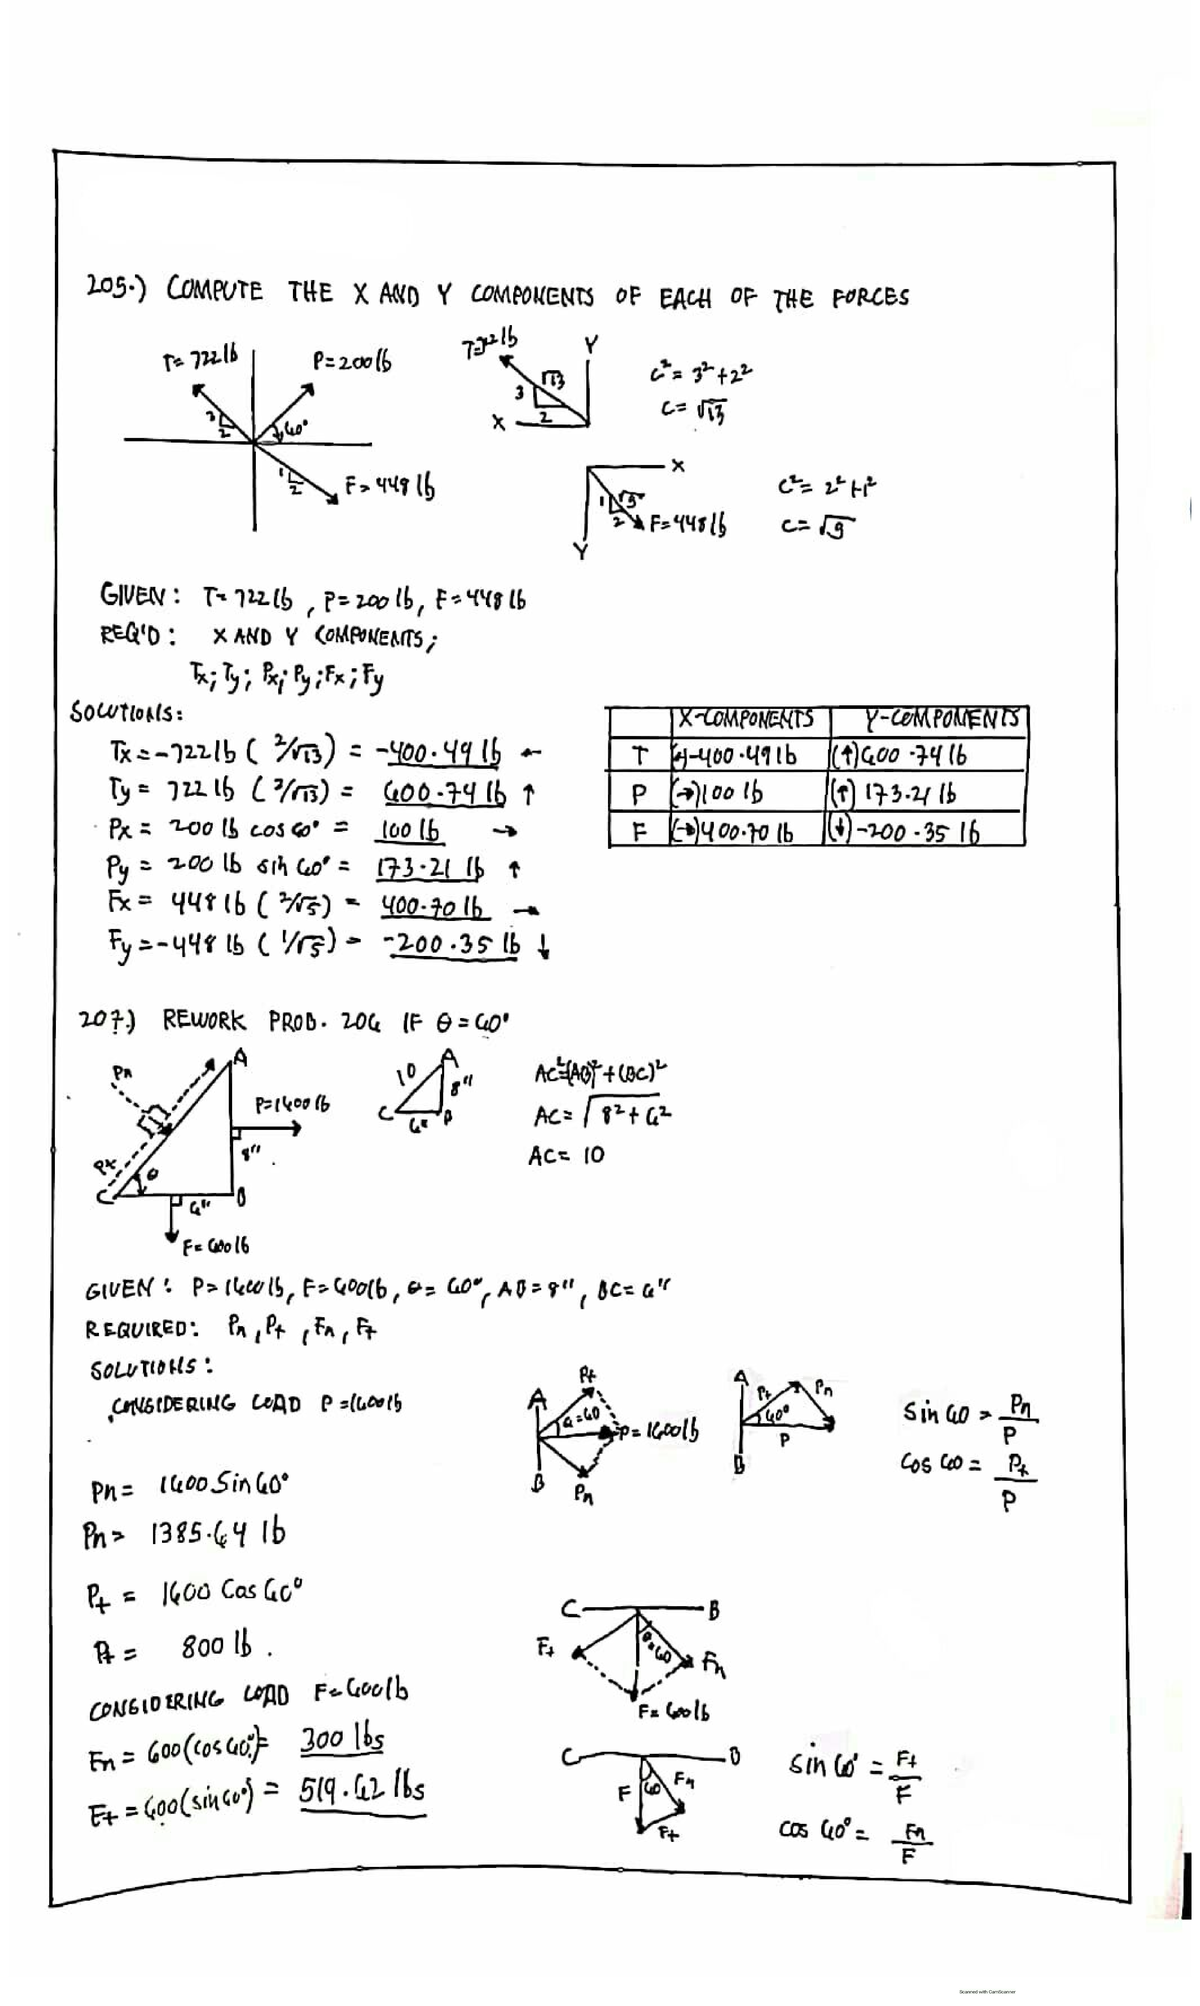 205.) COMPUTE THE X AND Y COMPONENTS OF EACH OF THE FORCES
T= 722 lb
P=200lb
3
2
60°
1
2
F=448 lb
T=722 lb
Y
√13
3
2
X
c²= 3²+2²
c= √13
X
1
√5
2
F=448 lb
Y
c²= 2²+1²
c= √5
GIVEN: T=722 lb, P=200 lb, F=448 lb
REQ'D: X AND Y COMPONENTS;
Tx; Ty; Px; Py; Fx; Fy
SOLUTIONS:
Tx=-722 lb ( 2/√13) = -400.49 lb ←
Ty = 722 lb ( 3/√13) = 600.74 lb ↑
Px = 200 lb cos 60° = 100 lb →
Py = 200 lb sin 60° = 173.21 lb ↑
Fx = 448 lb ( 2/√5) = 400.70 lb →
Fy =-448 lb ( 1/√5) = -200.35 lb ↓
X-COMPONENTS Y-COMPONENTS
T (←)-400.49 lb (↑)600.74 lb
P (→)100 lb (↑) 173.21 lb
F (→)400.70 lb (↓)-200.35 lb
207.) REWORK PROB. 206 IF θ=60°
Pn
A
P=1600 lb
8"
Px
θ
C
6"
B
F= 600 lb
10
A
8"
C
6"
B
AC²=(AB)²+(BC)²
AC= √8²+6²
AC= 10
GIVEN: P=1600 lb, F=600lb, θ= 60°, AB=8", BC=6"
REQUIRED: Pn, Pt, Fn, Ft
SOLUTIONS:
CONSIDERING LOAD P=1600lb
A
Pt
θ=60
P=1600lb
B
Pn
A
Pt
Pn
60°
P
B
Sin 60 = Pn/P
cos 60 = Pt/P
Pn= 1600 Sin 60°
Pn= 1385.64 lb
Pt = 1600 Cos 60°
Pt = 800 lb.
C
B
Ft
θ=60
Fn
F= 600 lb
CONSIDERING LOAD F=600lb
Fn = 600(cos 60°)= 300 lbs
Ft = 600(sin 60°) = 519.62 lbs
C
B
F
60
Fn
Ft
sin 60° = Ft/F
cos 60° = Fn/F
Scanned with CamScanner